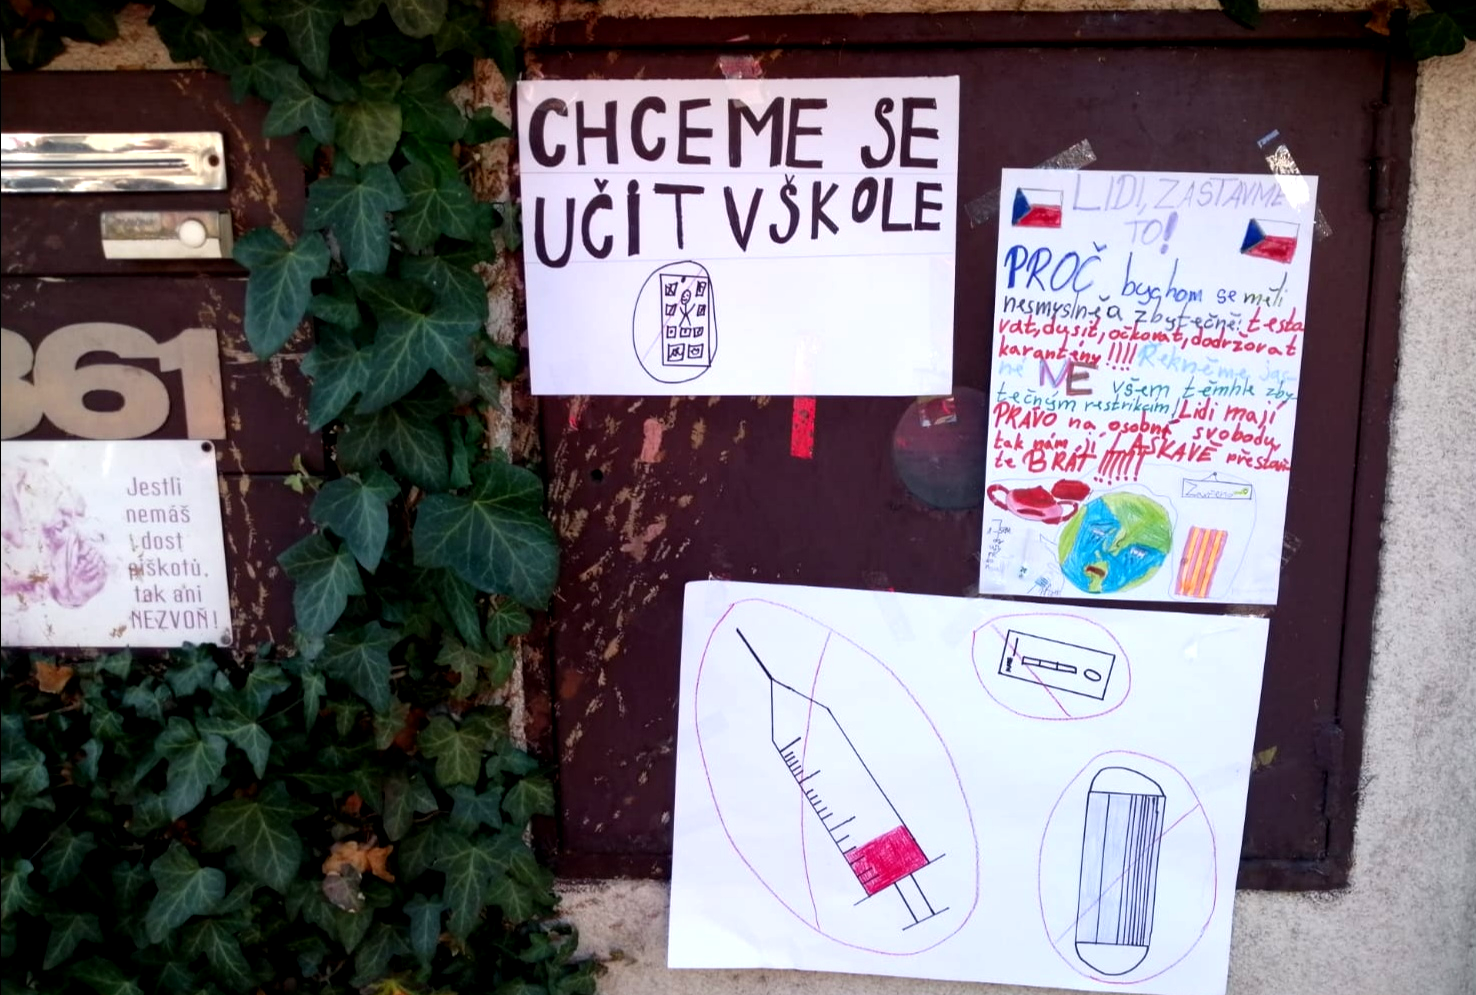 361
Jestli
nemáš
dost
piškotů,
tak ani
NEZVOŇ!
CHCEME SE
UČIT V ŠKOLE
LIDI, ZASTAVME
TO!
PROČ bychom se měli
nesmyslně a zbytečně: testo
vat, dusit, očkovat, dodržovat
karantény!!!! Řekněme jas-
ně NE všem těmhle zby-
tečným restrikcím! Lidi mají
PRÁVO na osobní svobodu,
tak nám ji LASKAVĚ přestaň
te BRÁT!!!!!!
Zavřeno